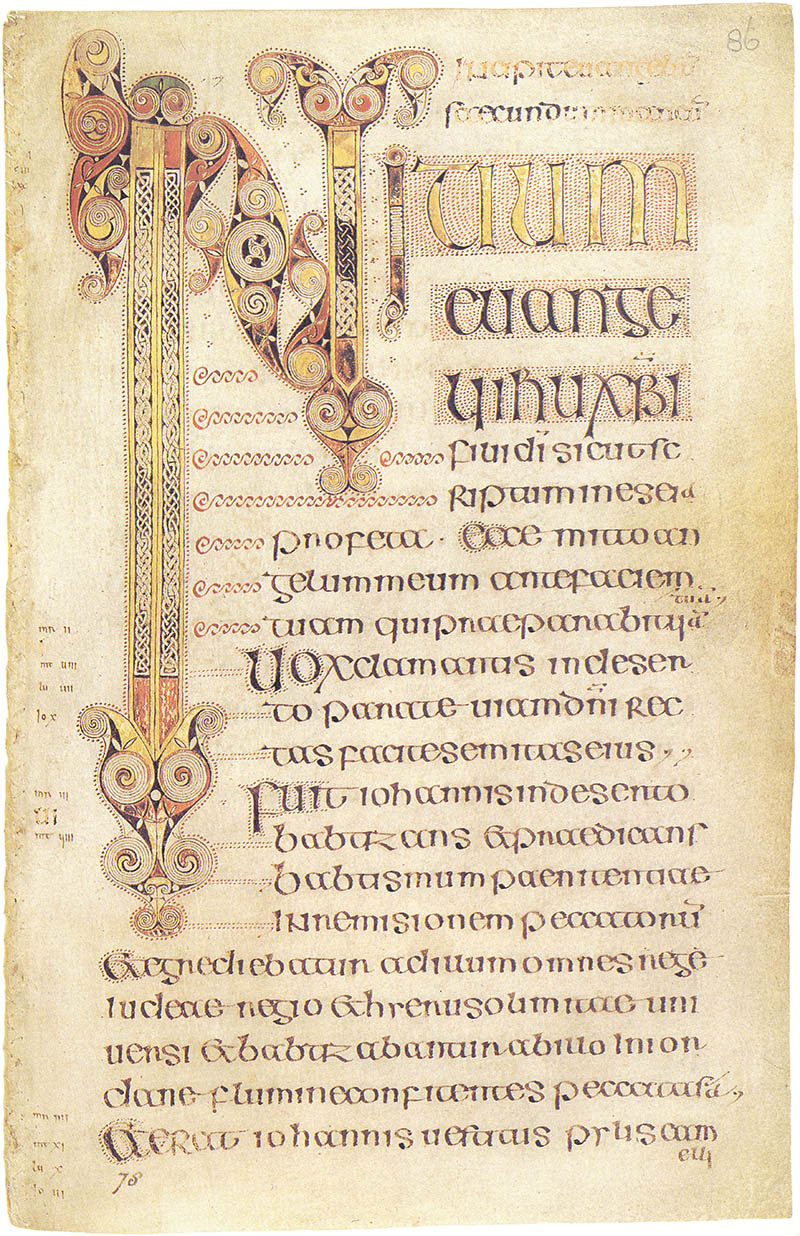 86
Incipit euangeliū
secundum marcū
INITIUM
EUANGE
LII IHU XP̄I
filii dī sicut sc
riptum in eseia
profeta · Ecce mitto an
gelum meum ante faciem
tuam qui praeparabit uiā tuā
Uox clamantis in deser
to parate uiam dn̄i rec
tas facite semitas eius
Fuit iohannis in deserto
babtizans & praedicans
babtismum paenitentiae
in remisionem peccatorū
& egrediebatur ad illum omnes rege
iudeae regio & hierusolimitae uni
uersi & babtizabantur ab illo in ior
dane flumine confitentes peccata sā
& erat iohannis uestitus pylis cam
elli
78